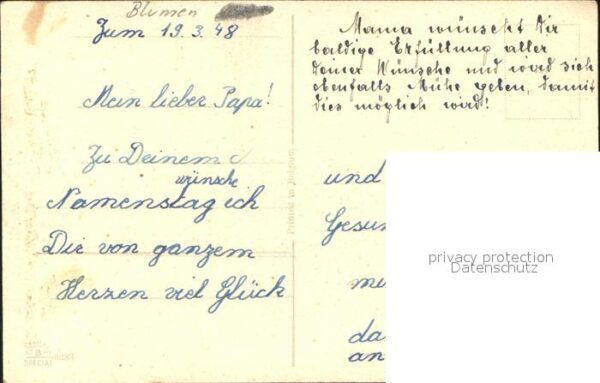 Blumen
Zum 19.3.48
Mein lieber Papa!
Zu Deinem
wünsche
Namenstag ich
Dir von ganzem
Herzen viel Glück
Mama wünscht Dir
baldige Erfüllung aller
Deiner Wünsche und wird sich
ebenfalls Mühe geben, damit
dies möglich wird!
und
Gesun
me
da
an
Printed in Belgium
privacy protection
Datenschutz
SPECIAL